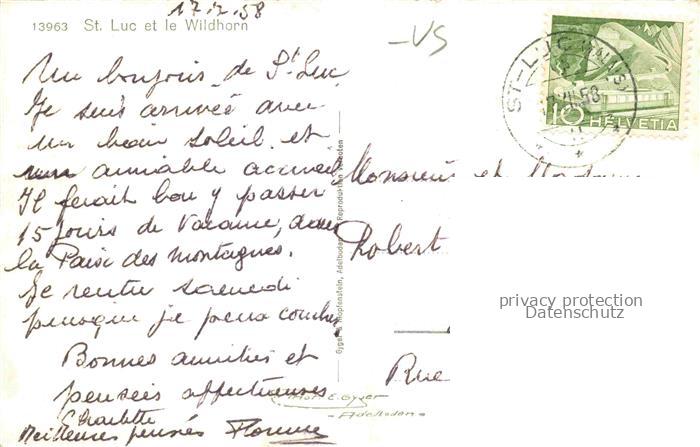 17.2.58
13963 St. Luc et le Wildhorn
-VS
Un bonjour de St Luc
Je suis arrivée avec
un beau soleil et
un aimable accueil
Il ferait bon y passer
15 jours de vacance, dans
la Paix des montagnes.
Je rentre samedi
puisque je peux coucher
Bonnes amitiés et
pensées affectueuses
Charlotte
Meilleures pensées Florence
Gyger & Klopfenstein, Adelboden, Reproduktion verboten
Monsieur et Madame
Robert
Rue
Phot. E. Gyger
- Adelboden -
ST-LUC (VALAIS)
58
10 HELVETIA
privacy protection
Datenschutz